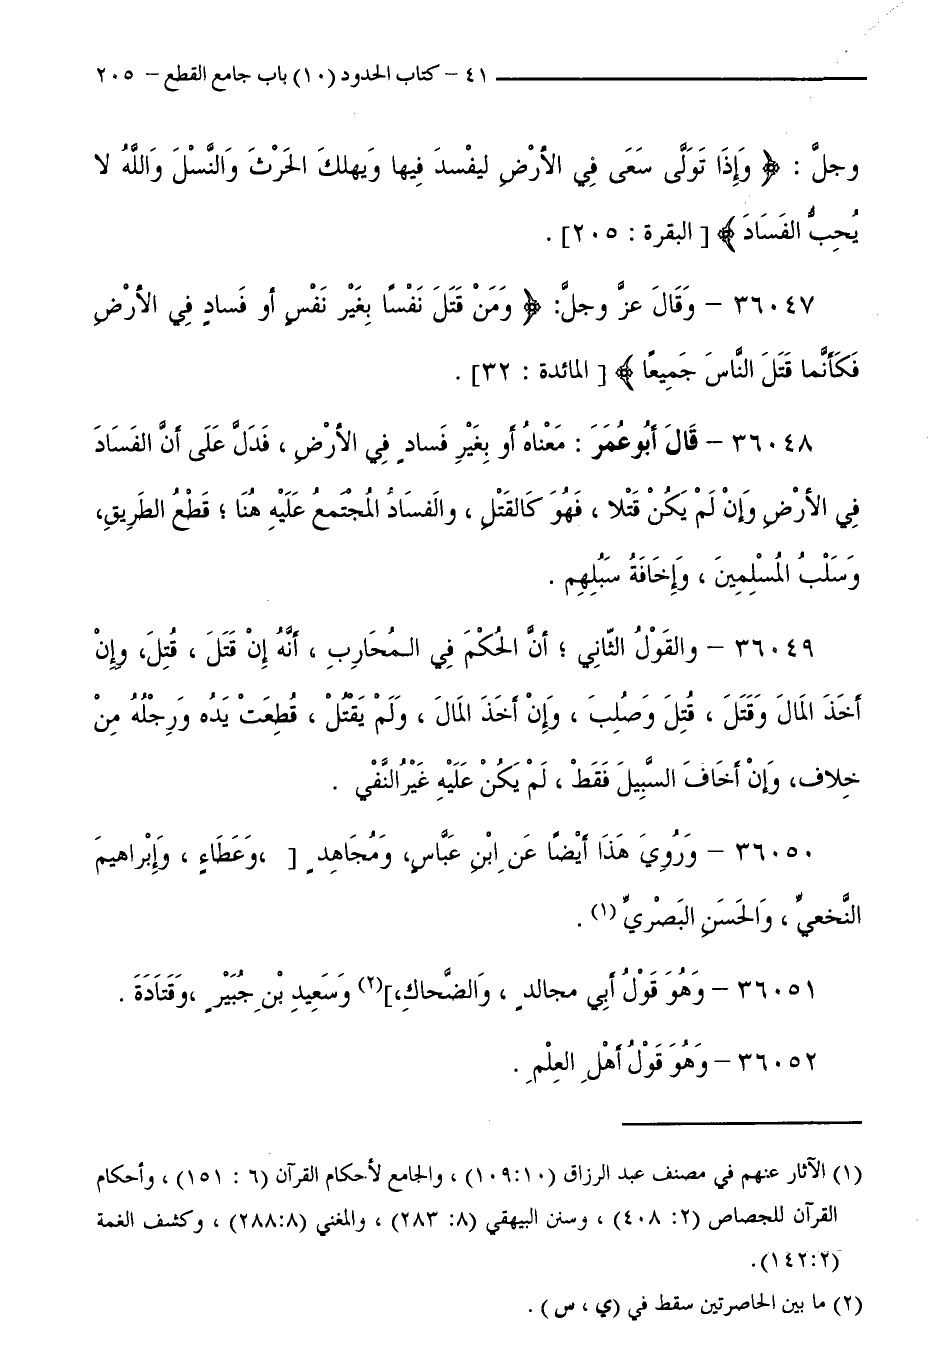 ٤١ – كتاب الحدود (١٠) باب جامع القطع – ٢٠٥
وجلَّ : ﴿ وَإِذَا تَوَلَّى سَعَى فِي الأَرْضِ ليفْسدَ فِيها وَيهلكَ الحَرْثَ وَالنَّسْلَ وَاللَّهُ لا
يُحِبُّ الفَسَادَ ﴾ [ البقرة : ٢٠٥] .
٣٦٠٤٧ – وَقَالَ عزَّ وجلَّ: ﴿ وَمَنْ قَتَلَ نَفْسًا بِغَيْر نَفْسٍ أو فَسادٍ فِي الأرْضِ
فَكَأَنَّما قَتَلَ النَّاسَ جَمِيعًا ﴾ [ المائدة : ٣٢] .
٣٦٠٤٨ – قَالَ أبُو عُمَرَ : مَعْناهُ أو بِغَيْرِ فَسادٍ فِي الأرْضِ ، فَدَلَّ عَلَى أنَّ الفَسَادَ
فِي الأرْضِ وَإنْ لَمْ يَكُنْ قَتْلا ، فَهُوَ كَالقَتْلِ ، والفَسادُ المُجْتَمعُ عَلَيْهِ هُنَا ؛ قَطْعُ الطَرِيقِ،
وَسَلْبُ المُسْلِمِينَ ، وَإِخَافَةُ سَبُلِهِم .
٣٦٠٤٩ – والقَوْلُ الثّانِي ؛ أنَّ الحُكْمَ فِي المُحَارِبِ ، أنَّهُ إنْ قَتَلَ ، قُتِلَ، وإنْ
أخَذَ المَالَ وَقَتَلَ ، قُتِلَ وَصُلِبَ ، وَإنْ أخَذَ المَالَ ، ولَمْ يَقْتُلْ ، قُطِعَتْ يَدُه وَرِجْلُهُ مِنْ
خلافٍ، وَإنْ أخَافَ السَّبِيلَ فَقَطْ ، لَمْ يَكُنْ عَلَيْهِ غَيْرُ النَّفْيِ .
٣٦٠٥٠ – وَرُوِيَ هَذَا أيْضًا عَنِ ابْنِ عَبَّاسٍ، وَمُجَاهِدٍ [ ،وَعَطَاءٍ ، وَإبْراهيمَ
النَّخعيِّ ، وَالحَسَنِ البَصْريِّ (١) .
٣٦٠٥١ – وَهُوَ قَوْلُ أبِي مجالدٍ ، وَالضَّحاكِ،](٢) وَسَعِيدِ بْنِ جُبَيْرٍ ،وَقَتَادَةَ .
٣٦٠٥٢ – وَهُوَ قَوْلُ أهْلِ العِلْمِ .
(١) الآثار عنهم في مصنف عبد الرزاق (١٠٩:١٠) ، والجامع لأحكام القرآن (٦ : ١٥١) ، وأحكام
القرآن للجصاص (٢: ٤٠٨) ، وسنن البيهقي (٨: ٢٨٣) ، والمغني (٢٨٨:٨) ، وكشف الغمة
(١٤٢:٢).
(٢) ما بين الحاصرتين سقط في (ي ، س ) .